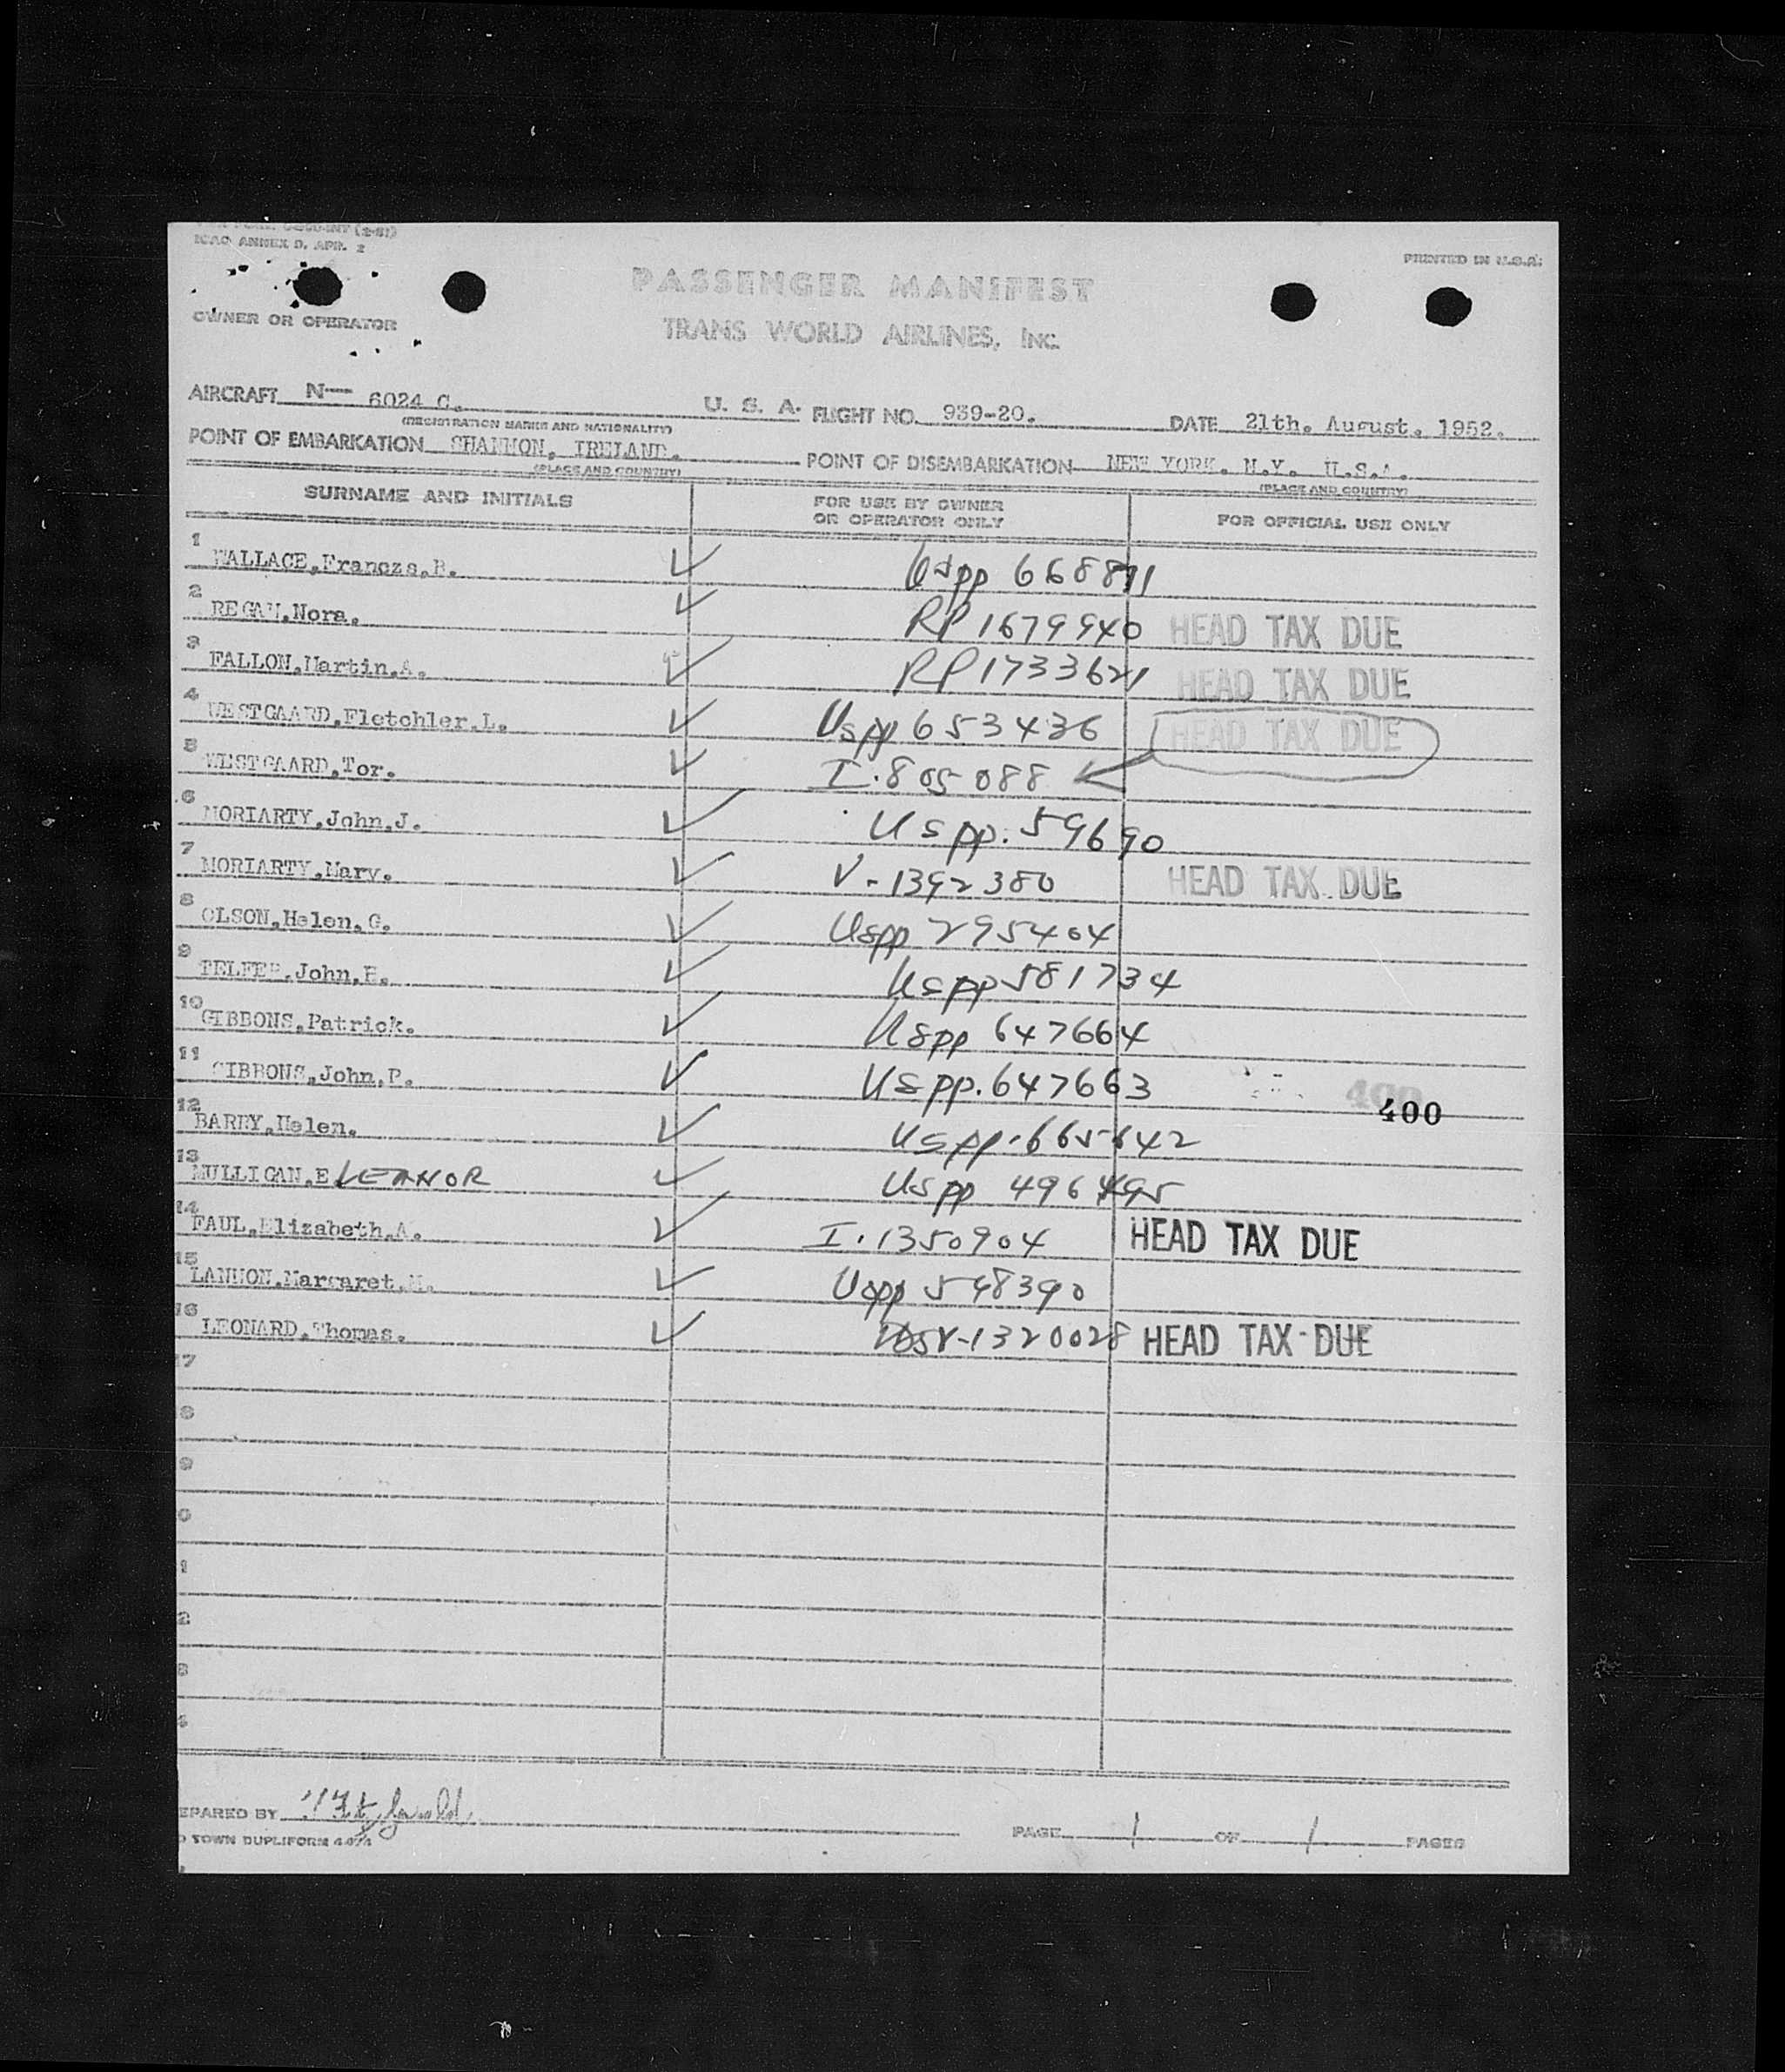 ICAO ANNEX 9, APR. 2
PRINTED IN U.S.A.
PASSENGER MANIFEST
OWNER OR OPERATOR
TRANS WORLD AIRLINES, INC.
AIRCRAFT N— 6024 C. U. S. A. FLIGHT NO. 939-20. DATE 21th. August. 1952.
(REGISTRATION MARKS AND NATIONALITY)
POINT OF EMBARKATION SHANNON, IRELAND. POINT OF DISEMBARKATION NEW YORK. N.Y. U.S.A.
(PLACE AND COUNTRY) (PLACE AND COUNTRY)
SURNAME AND INITIALS FOR USE BY OWNER OR OPERATOR ONLY FOR OFFICIAL USE ONLY
1 WALLACE,Francza,B. ✓ Uspp 668871
2 REGAN,Nora. ✓ RP 1679940 HEAD TAX DUE
3 FALLON,Martin,A. ✓ RP 1733621 HEAD TAX DUE
4 WESTGAARD,Fletchler.L. ✓ Uspp 653436 HEAD TAX DUE
5 WESTGAARD,Tor. ✓ I.805088
6 MORIARTY,John,J. ✓ Uspp. 59690
7 MORIARTY,Mary. ✓ V-1392380 HEAD TAX DUE
8 OLSON,Helen,G. ✓ Uspp 295404
9 TELFER,John,H. ✓ Uspp 581734
10 GIBBONS,Patrick. ✓ Uspp 647664
11 GIBBONS,John,P. ✓ Uspp. 647663
400
12 BARRY,Helen. ✓ Uspp. 665642
13 MULLIGAN,ELEANOR ✓ Uspp 496495
14 FAUL,Elizabeth,A. ✓ I.1350904 HEAD TAX DUE
15 LANNON,Margaret,M. ✓ Uspp 548390
16 LEONARD,Thomas. ✓ 1320028 HEAD TAX DUE
7
8
9
0
1
2
3
4
EPARED BY PAGE 1 OF 1 PAGES
TOWN DUPLIFORM